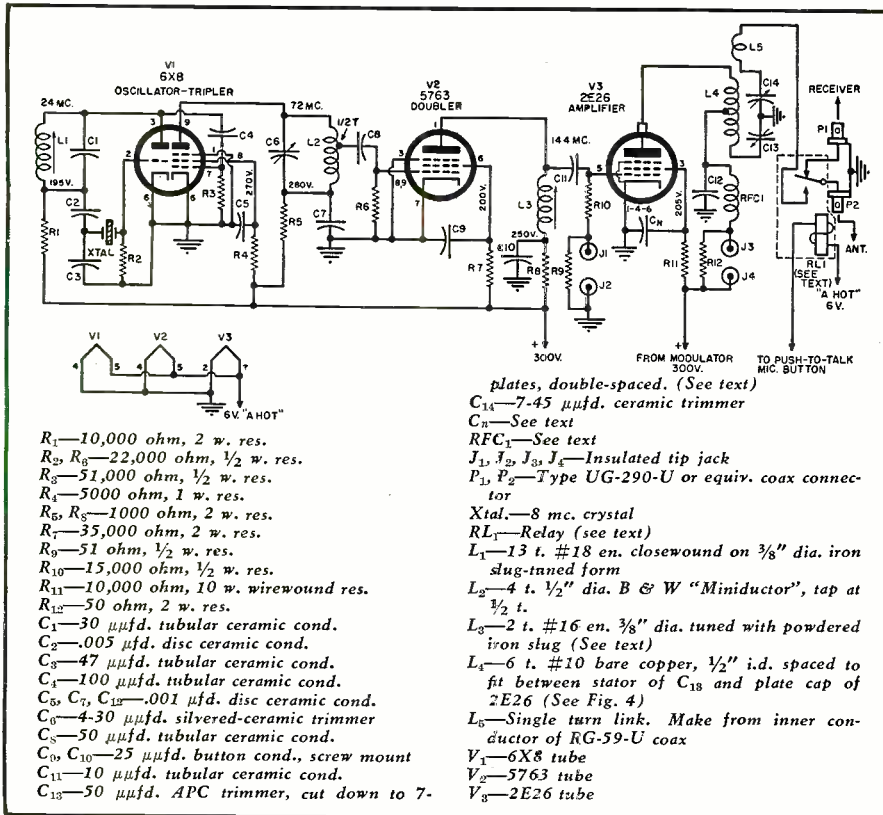 V1
6X8
OSCILLATOR-TRIPLER
V2
5763
DOUBLER
V3
2E26
AMPLIFIER
24 MC.
L1
C1
195V.
C2
R1
XTAL
C3
R2
2
3
9
1
8
7
6
6
C4
R3
270V.
C5
R4
72 MC.
C6
L2
1/2T
C8
280V.
R5
C7
R6
1
3
8,9
7
6
200V.
C9
R7
144 MC.
C11
L3
250V.
C10
R8
R9
R10
J1
J2
5
3
1-4-6
CN
205V.
R11
R12
J3
J4
C12
RFC1
L4
L5
C14
C13
RECEIVER
P1
P2
ANT.
RL1
(SEE TEXT)
"A HOT"
6V.
+
300V.
+
FROM MODULATOR
300V.
TO PUSH-TO-TALK
MIC. BUTTON
V1
V2
V3
4
5
4
5
2
7
6V. "A HOT"
R1—10,000 ohm, 2 w. res.
R2, R6—22,000 ohm, ½ w. res.
R3—51,000 ohm, ½ w. res.
R4—5000 ohm, 1 w. res.
R5, R8—1000 ohm, 2 w. res.
R7—35,000 ohm, 2 w. res.
R9—51 ohm, ½ w. res.
R10—15,000 ohm, ½ w. res.
R11—10,000 ohm, 10 w. wirewound res.
R12—50 ohm, 2 w. res.
C1—30 μμfd. tubular ceramic cond.
C2—.005 μfd. disc ceramic cond.
C3—47 μμfd. tubular ceramic cond.
C4—100 μμfd. tubular ceramic cond.
C5, C7, C12—.001 μfd. disc ceramic cond.
C6—4-30 μμfd. silvered-ceramic trimmer
C8—50 μμfd. tubular ceramic cond.
C9, C10—25 μμfd. button cond., screw mount
C11—10 μμfd. tubular ceramic cond.
C13—50 μμfd. APC trimmer, cut down to 7-
plates, double-spaced. (See text)
C14—7-45 μμfd. ceramic trimmer
Cn—See text
RFC1—See text
J1, J2, J3, J4—Insulated tip jack
P1, P2—Type UG-290-U or equiv. coax connec-
tor
Xtal.—8 mc. crystal
RL1—Relay (see text)
L1—13 t. #18 en. closewound on ⅜" dia. iron
slug-tuned form
L2—4 t. ½" dia. B & W "Miniductor", tap at
½ t.
L3—2 t. #16 en. ⅜" dia. tuned with powdered
iron slug (See text)
L4—6 t. #10 bare copper, ½" i.d. spaced to
fit between stator of C13 and plate cap of
2E26 (See Fig. 4)
L5—Single turn link. Make from inner con-
ductor of RG-59-U coax
V1—6X8 tube
V2—5763 tube
V3—2E26 tube